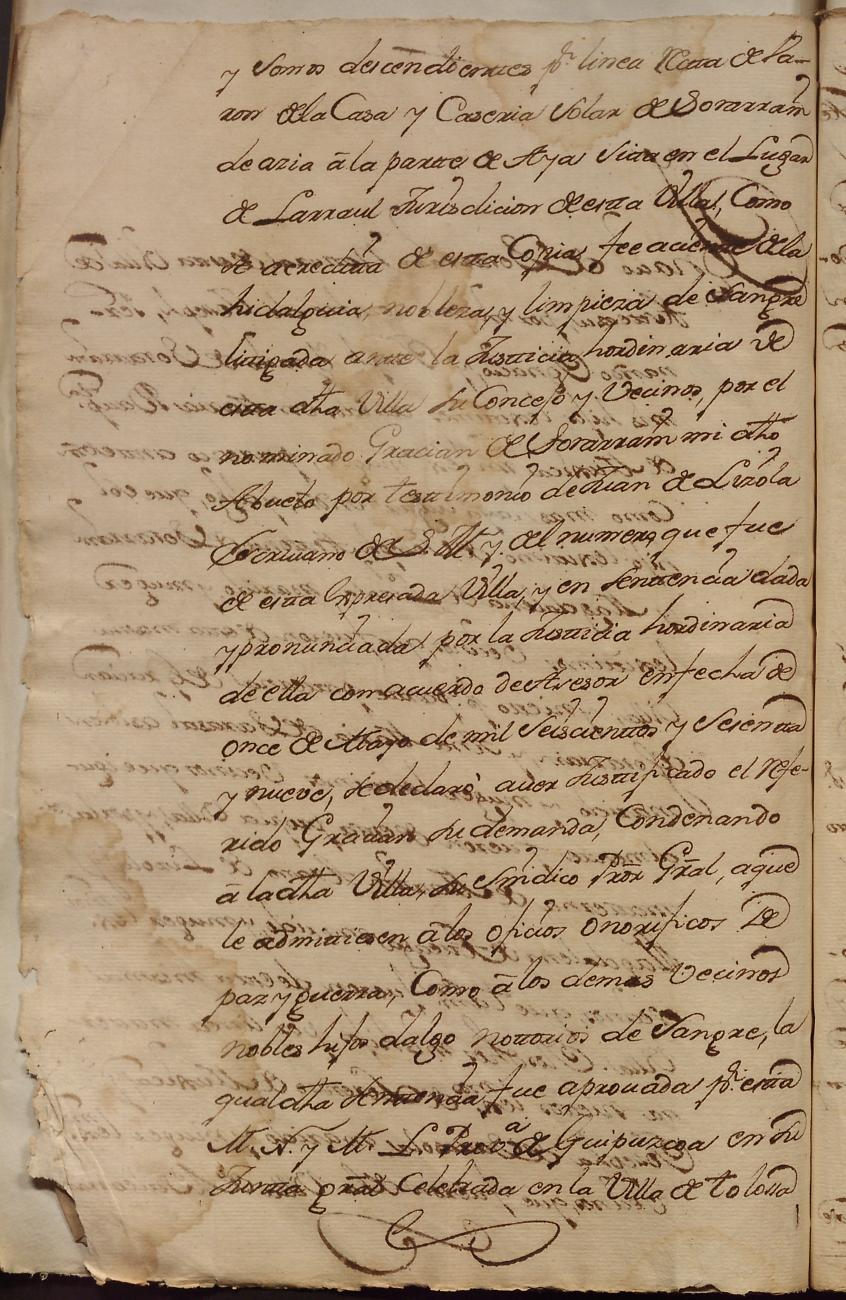 y somos descendientes pr. linea Recta de Va-
ron dela Casa y Caseria Solar de Sorarrain
de azia â la parte de Aya sita en el Lugar
de Larraul Jurisdicion de esta Villa, Como
se acredita de esta Copia feeaciente de la
hidalguia, nobleza, y limpieza de Sangre
litigada ante la Justicia hordinaria de
esta dha Villa su Concejo y Vecinos, por el
nominado Gracian de Sorarrain mi dho
Abuelo por testimonio de Juan de Lizola
Escriuano de S. M. y del numero que fue
de esta Expresada Villa, y en Sentencia dada
y pronunciada por la Justicia hordinaria
de ella con acuerdo de Asesor en fecha de
once de Mayo de mil Seiscientos y Sesenta
y nueve, se declaró auer Justificado el refe-
rido Gracian su demanda, Condenando
â la dha Villa, su Sindico Pror Gral, a que
le admitiesen â los oficios onorificos de
paz y guerra, Como â los demas Vecinos
nobles hijos dalgo nottorios de Sangre, la
qual dha Sentencia fue aprouada pr. esta
M. N. y M. L. Prova de Guipuzcoa en su
Junta gral Celebrada en la Villa de tolossa